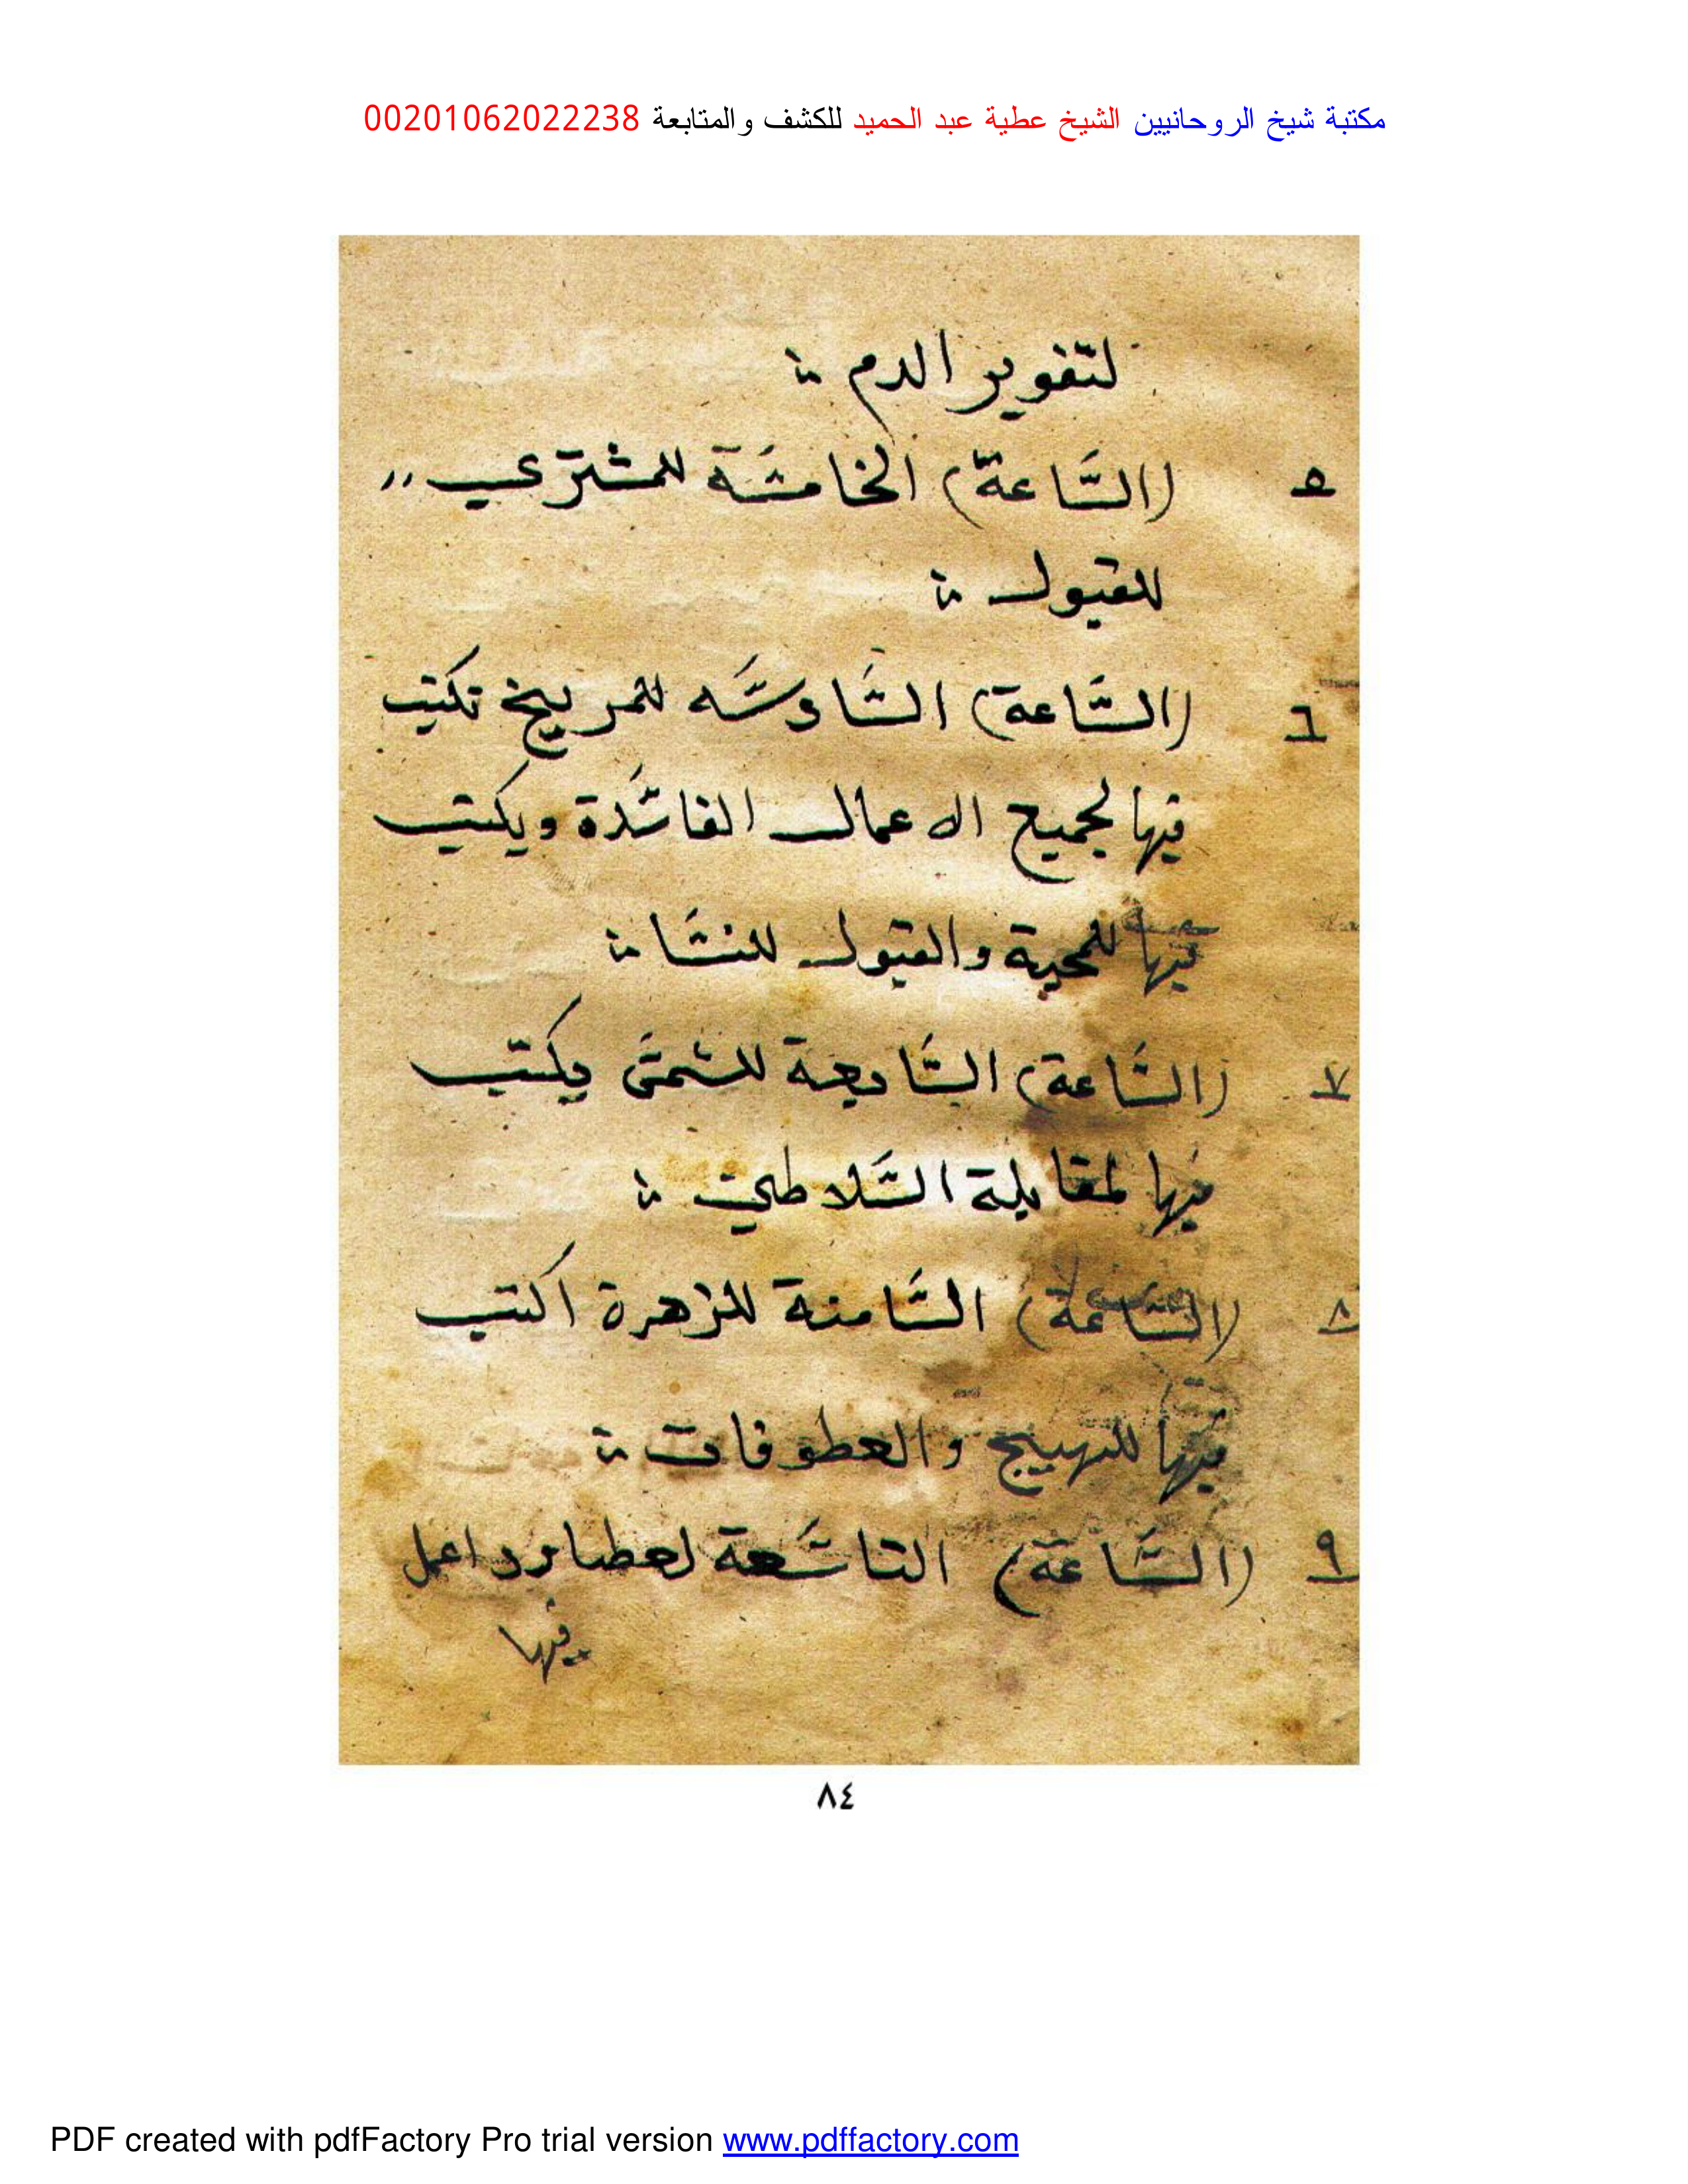 مكتبة شيخ الروحانيين الشيخ عطية عبد الحميد للكشف والمتابعة 00201062022238
لتغوير الدم
٥ (الساعة) الخامسة للمشتري
للقبول
٦ (الساعة) السادسه للمريخ تكتب
فيها لجميع الاعمال الفاسدة ويكتب
فيها للمحبة والقبول للنسا
٧ (الساعة) السابعة للشمس يكتب
فيها لمقابلة السلاطين
٨ (الساعة) الثامنة للزهرة اكتب
فيها للتهييج والعطوفات
٩ (الساعة) التاسعة لعطارد اعمل
فيها
٨٤
PDF created with pdfFactory Pro trial version www.pdffactory.com